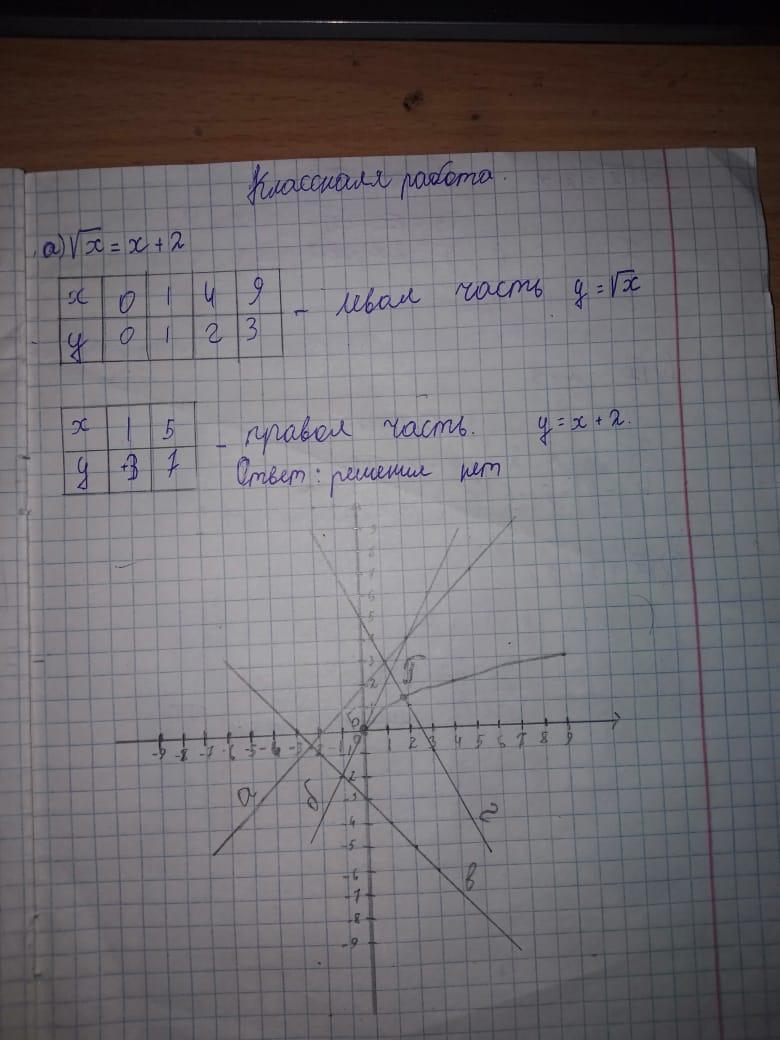 Классная работа.
а) √x = x + 2
x 0 1 4 9
y 0 1 2 3
- левая часть y = √x
x 1 5
y +3 7
- правая часть. y = x + 2.
Ответ: решения нет
9
8
7
6
5
4
3
2
1
Г
Б
0
-9 -8 -7 -6 -5 -4 -3 -2 -1 1 2 3 4 5 6 7 8 9
-1
-2
-3
-4
-5
-6
-7
-8
-9
а
б
г
в